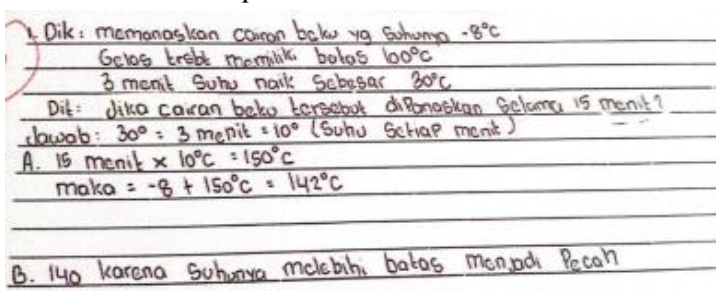 1. Dik: memanaskan cairan beku yg suhunya -8°C
Gelas trsbt memiliki batas 100°C
3 menit suhu naik sebesar 30°C
Dit: Jika cairan beku tersebut dipanaskan selama 15 menit?
Jawab: 30° : 3 menit = 10° (suhu setiap menit)
A. 15 menit x 10°C = 150°C
maka = -8 + 150°C = 142°C
B. 140 karena suhunya melebihi batas menjadi pecah